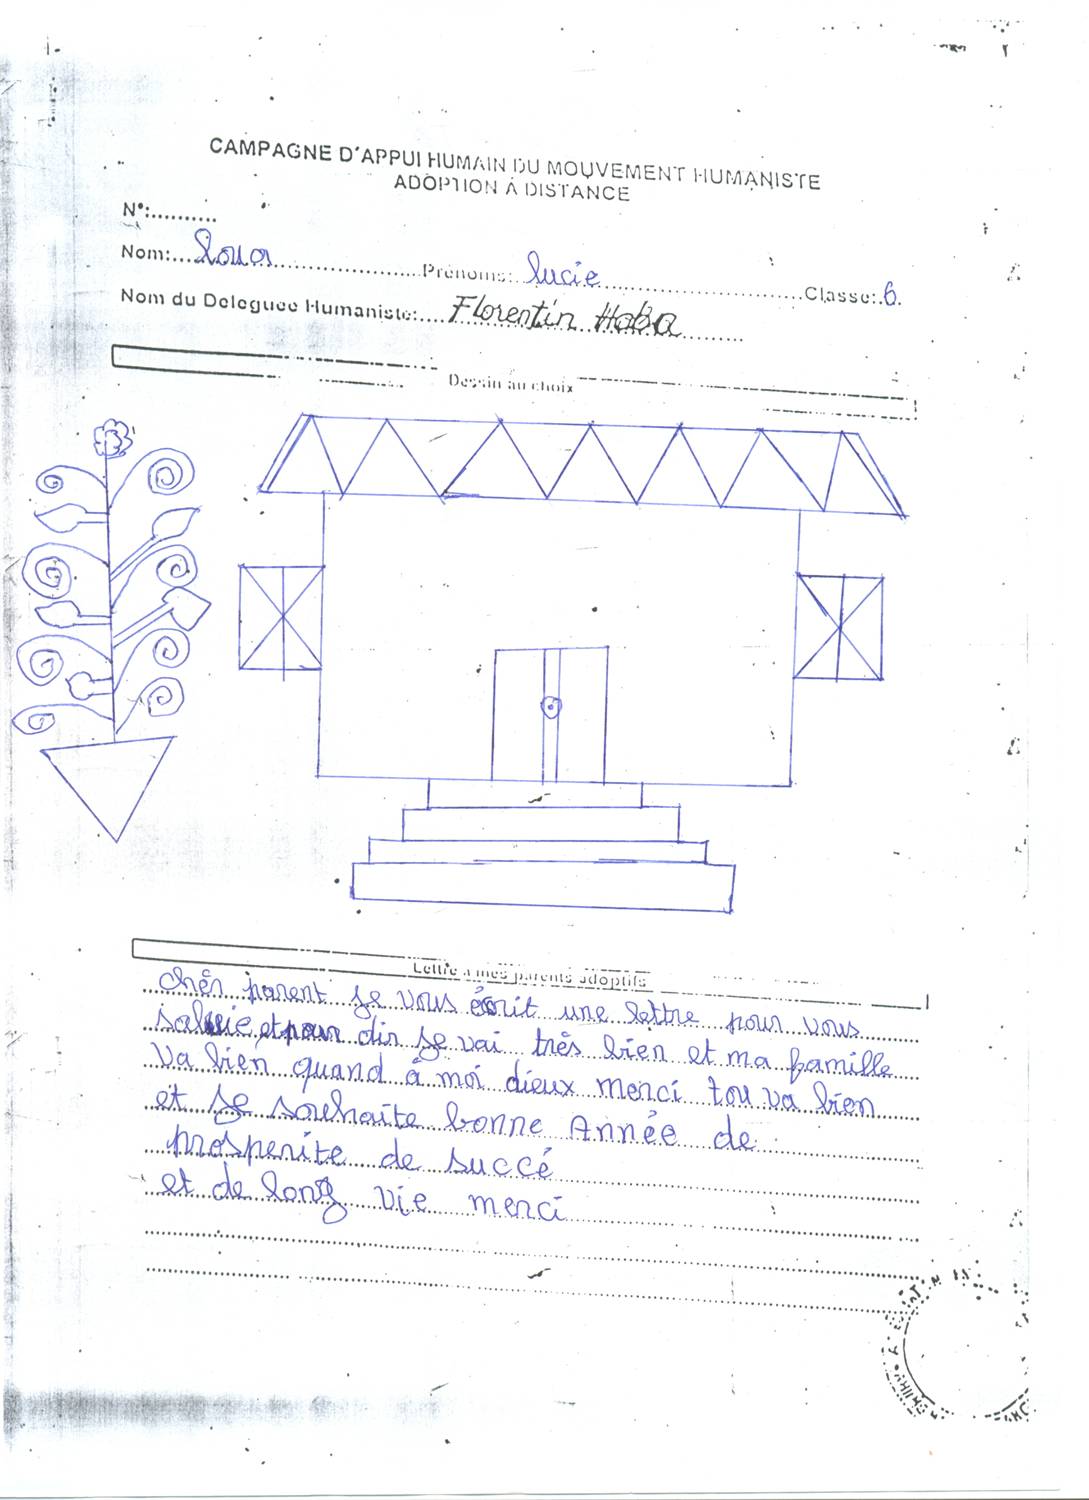 CAMPAGNE D'APPUI HUMAIN DU MOUVEMENT HUMANISTE
ADOPTION A DISTANCE
N°:..........
Nom:... Loua ... Prénoms: Lucie ... Classe: 6.
Nom du Deleguee Humaniste:.... Florentin Haba
Dessin au choix
Lettre a mes parents adoptifs
chèr parent je vous écrit une lettre pour vous
saluie et pour dir je vai très bien et ma famille
va bien quand à moi dieux merci tou va bien
et je souhaite bonne Année de
prosperite de succé
et de long vie merci